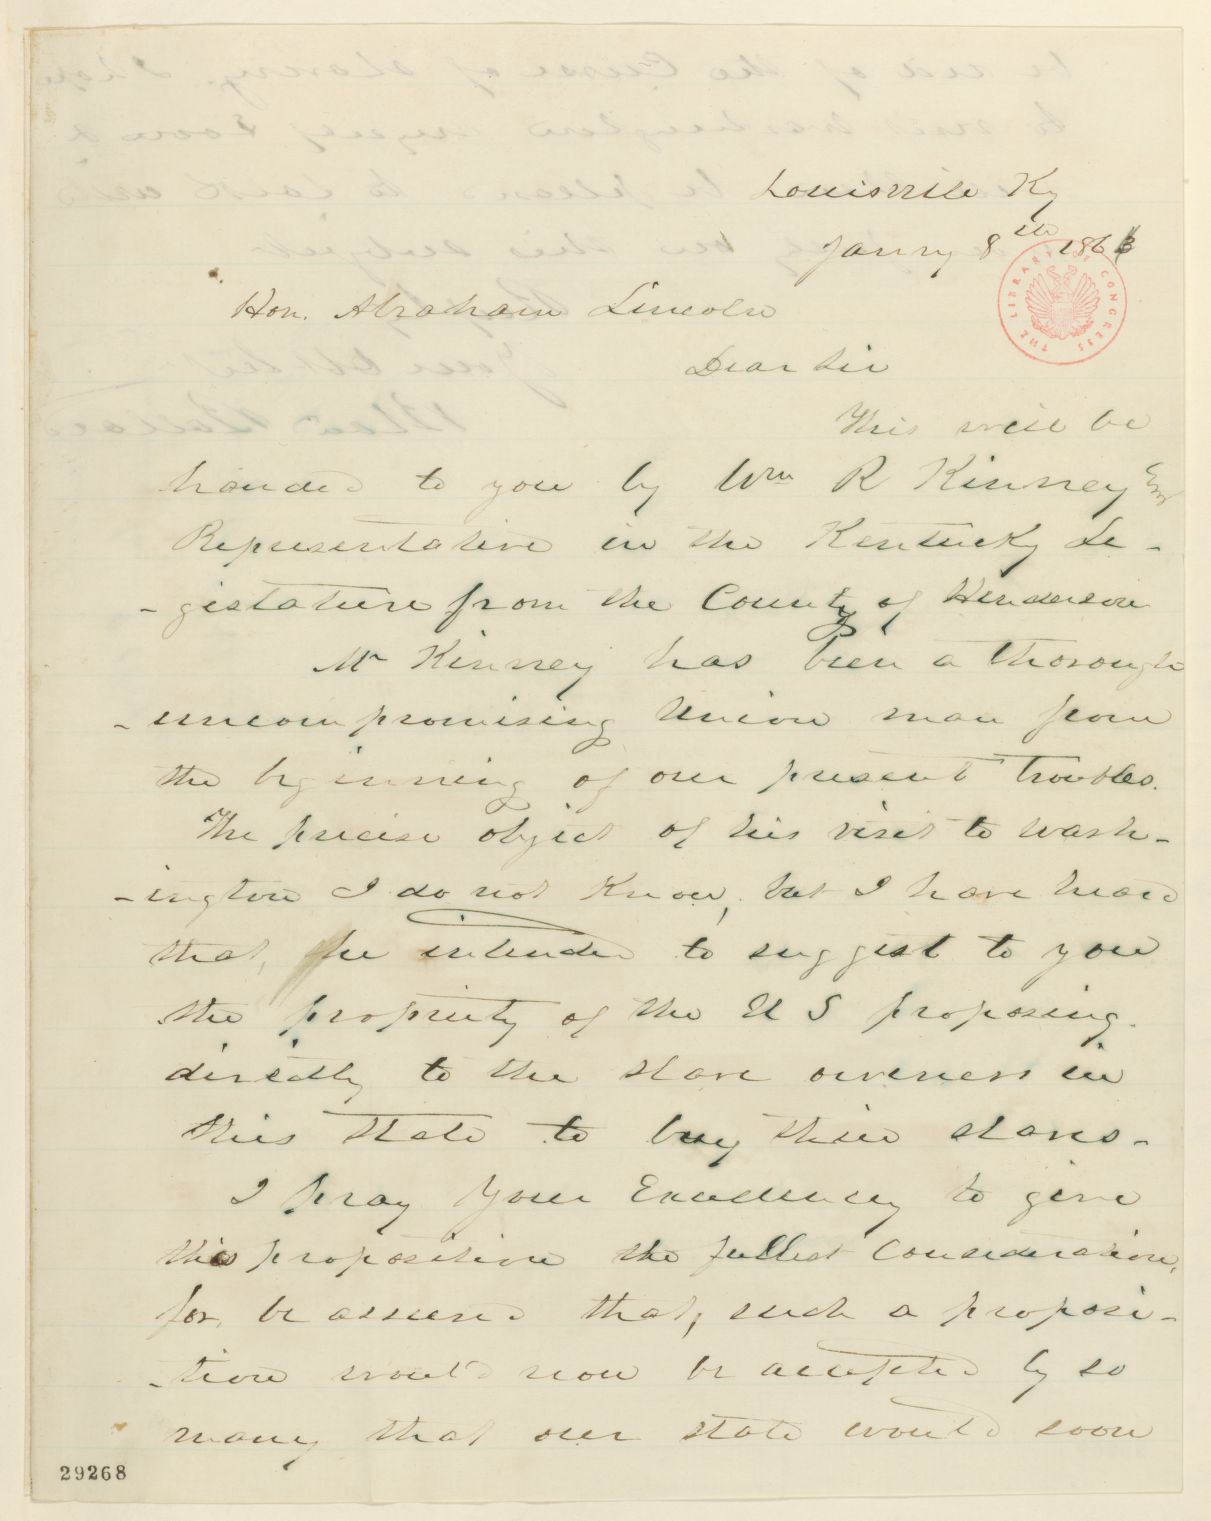 Louisville Ky
Janry 8th 1863
Hon. Abraham Lincoln
Dear Sir
This will be
handed to you by Wm R Kinney Esqr
Representative in the Kentucky Le-
-gislature from the County of Henderson
Mr Kinney has been a thorough
-uncompromising Union man from
the beginning of our present troubles.
The precise object of his visit to Wash-
-ington I do not Know, but I have heard
that, he intended to suggest to you
the propriety of the U S proposing.
directly to the slave owners in
this State to buy their slaves-
I pray your Excellency to give
this proposition the fullest Consideration,
for, be assured that, such a proposi-
-tion would now be accepted by so
many that our state would soon
THE LIBRARY OF CONGRESS
29268